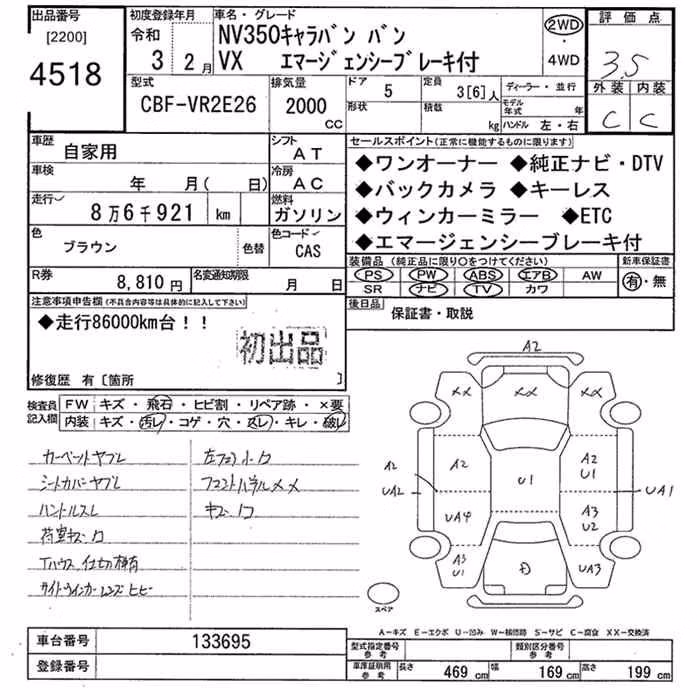 出品番号
[2200]
4518
初度登録年月
令和
3 2月
車名・グレード
NV350キャラバン バン
VX エマージェンシーブレーキ付
2WD
・
4WD
評価点
3.5
外装 内装
C C
型式
CBF-VR2E26
排気量
2000
CC
ドア
5
定員
3[6]人
ディーラー・並行
形状
積載
kg
モデル年式 年
ハンドル 左・右
車歴
自家用
シフト
AT
車検
年 月( 日)
冷房
AC
走行
8万6千921 km
燃料
ガソリン
色
ブラウン
色替
色コード
CAS
R券
8,810円
名変通知期限
月 日
セールスポイント(正常に機能するものに限ります)
◆ワンオーナー ◆純正ナビ・DTV
◆バックカメラ ◆キーレス
◆ウィンカーミラー ◆ETC
◆エマージェンシーブレーキ付
装備品(純正品に限り○をつけてください)
PS PW ABS エアB AW
SR ナビ TV カワ
新車保証書
有・無
後日品
保証書・取説
注意事項申告欄(不具合内容等は具体的に記入して下さい)
◆走行86000km台!!
初出品
修復歴 有〔箇所 〕
検査員
記入欄
FW キズ・飛石・ヒビ割・リペア跡・×要
内装 キズ・汚レ・コゲ・穴・スレ・キレ・破レ
カーペットヤブレ
シートカバーヤブレ
ハンドルスレ
荷室キズ
Tハウス 仕切棒有
サイドウインカーレンズ ヒビ
A2
XX XX XX
A2 A2 U1
UA2 U1 UA1
UA4 A3 U2
A3 U1 UA3
スペア
A-キズ E-エクボ U-凹み W-補修跡 S-サビ C-腐食 XX-交換済
車台番号
133695
登録番号
型式指定番号
参考
類別区分番号
参考
車庫証明用
参考
長さ
469 cm
幅
169 cm
高さ
199 cm